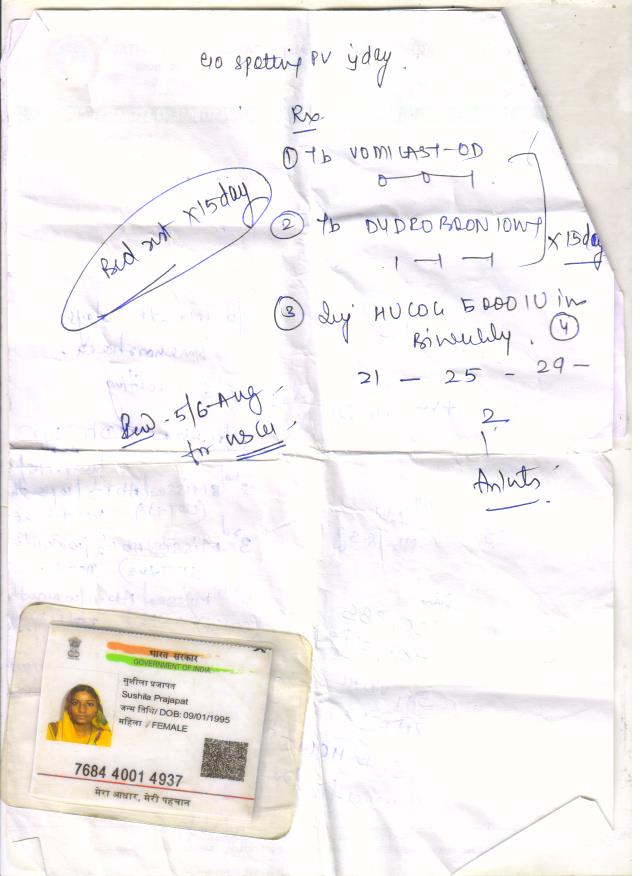 c/o spotting PV 1 day.
Rx.
① Tb VOMILAST-OD
0 — 0 — 1
② Tb DYDROBOON 10mg
1 — 1 — 1
x 15 day
Bed rest x 15 day
③ Inj HUCOG 5000 IU im
Biweekly. ④
21 — 25 — 29 —
2
Rev - 5/6 Aug
for USG
भारत सरकार
GOVERNMENT OF INDIA
सुशीला प्रजापत
Sushila Prajapat
जन्म तिथि/ DOB: 09/01/1995
महिला / FEMALE
7684 4001 4937
मेरा आधार, मेरी पहचान